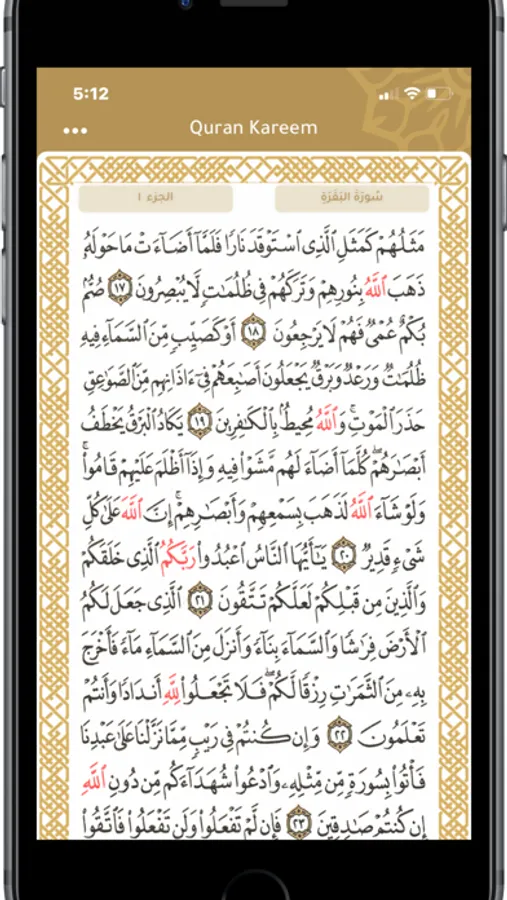 5:12
Quran Kareem
سُورَةُ البَقَرَةِ
الجزء ١
مَثَلُهُمْ كَمَثَلِ ٱلَّذِى ٱسْتَوْقَدَ نَارًا فَلَمَّآ أَضَآءَتْ مَا حَوْلَهُۥ
ذَهَبَ ٱللَّهُ بِنُورِهِمْ وَتَرَكَهُمْ فِى ظُلُمَٰتٍ لَّا يُبْصِرُونَ ١٧ صُمٌّۢ
بُكْمٌ عُمْىٌ فَهُمْ لَا يَرْجِعُونَ ١٨ أَوْ كَصَيِّبٍ مِّنَ ٱلسَّمَآءِ فِيهِ
ظُلُمَٰتٌ وَرَعْدٌ وَبَرْقٌ يَجْعَلُونَ أَصَٰبِعَهُمْ فِىٓ ءَاذَانِهِم مِّنَ ٱلصَّوَٰعِقِ
حَذَرَ ٱلْمَوْتِۚ وَٱللَّهُ مُحِيطٌۢ بِٱلْكَٰفِرِينَ ١٩ يَكَادُ ٱلْبَرْقُ يَخْطَفُ
أَبْصَٰرَهُمْۖ كُلَّمَآ أَضَآءَ لَهُم مَّشَوْا۟ فِيهِ وَإِذَآ أَظْلَمَ عَلَيْهِمْ قَامُوا۟ۚ
وَلَوْ شَآءَ ٱللَّهُ لَذَهَبَ بِسَمْعِهِمْ وَأَبْصَٰرِهِمْۚ إِنَّ ٱللَّهَ عَلَىٰ كُلِّ
شَىْءٍ قَدِيرٌ ٢٠ يَٰٓأَيُّهَا ٱلنَّاسُ ٱعْبُدُوا۟ رَبَّكُمُ ٱلَّذِى خَلَقَكُمْ
وَٱلَّذِينَ مِن قَبْلِكُمْ لَعَلَّكُمْ تَتَّقُونَ ٢١ ٱلَّذِى جَعَلَ لَكُمُ
ٱلْأَرْضَ فِرَٰشًا وَٱلسَّمَآءَ بِنَآءً وَأَنزَلَ مِنَ ٱلسَّمَآءِ مَآءً فَأَخْرَجَ
بِهِۦ مِنَ ٱلثَّمَرَٰتِ رِزْقًا لَّكُمْۖ فَلَا تَجْعَلُوا۟ لِلَّهِ أَندَادًا وَأَنتُمْ
تَعْلَمُونَ ٢٢ وَإِن كُنتُمْ فِى رَيْبٍ مِّمَّا نَزَّلْنَا عَلَىٰ عَبْدِنَا
فَأْتُوا۟ بِسُورَةٍ مِّن مِّثْلِهِۦ وَٱدْعُوا۟ شُهَدَآءَكُم مِّن دُونِ ٱللَّهِ
إِن كُنتُمْ صَٰدِقِينَ ٢٣ فَإِن لَّمْ تَفْعَلُوا۟ وَلَن تَفْعَلُوا۟ فَٱتَّقُوا۟